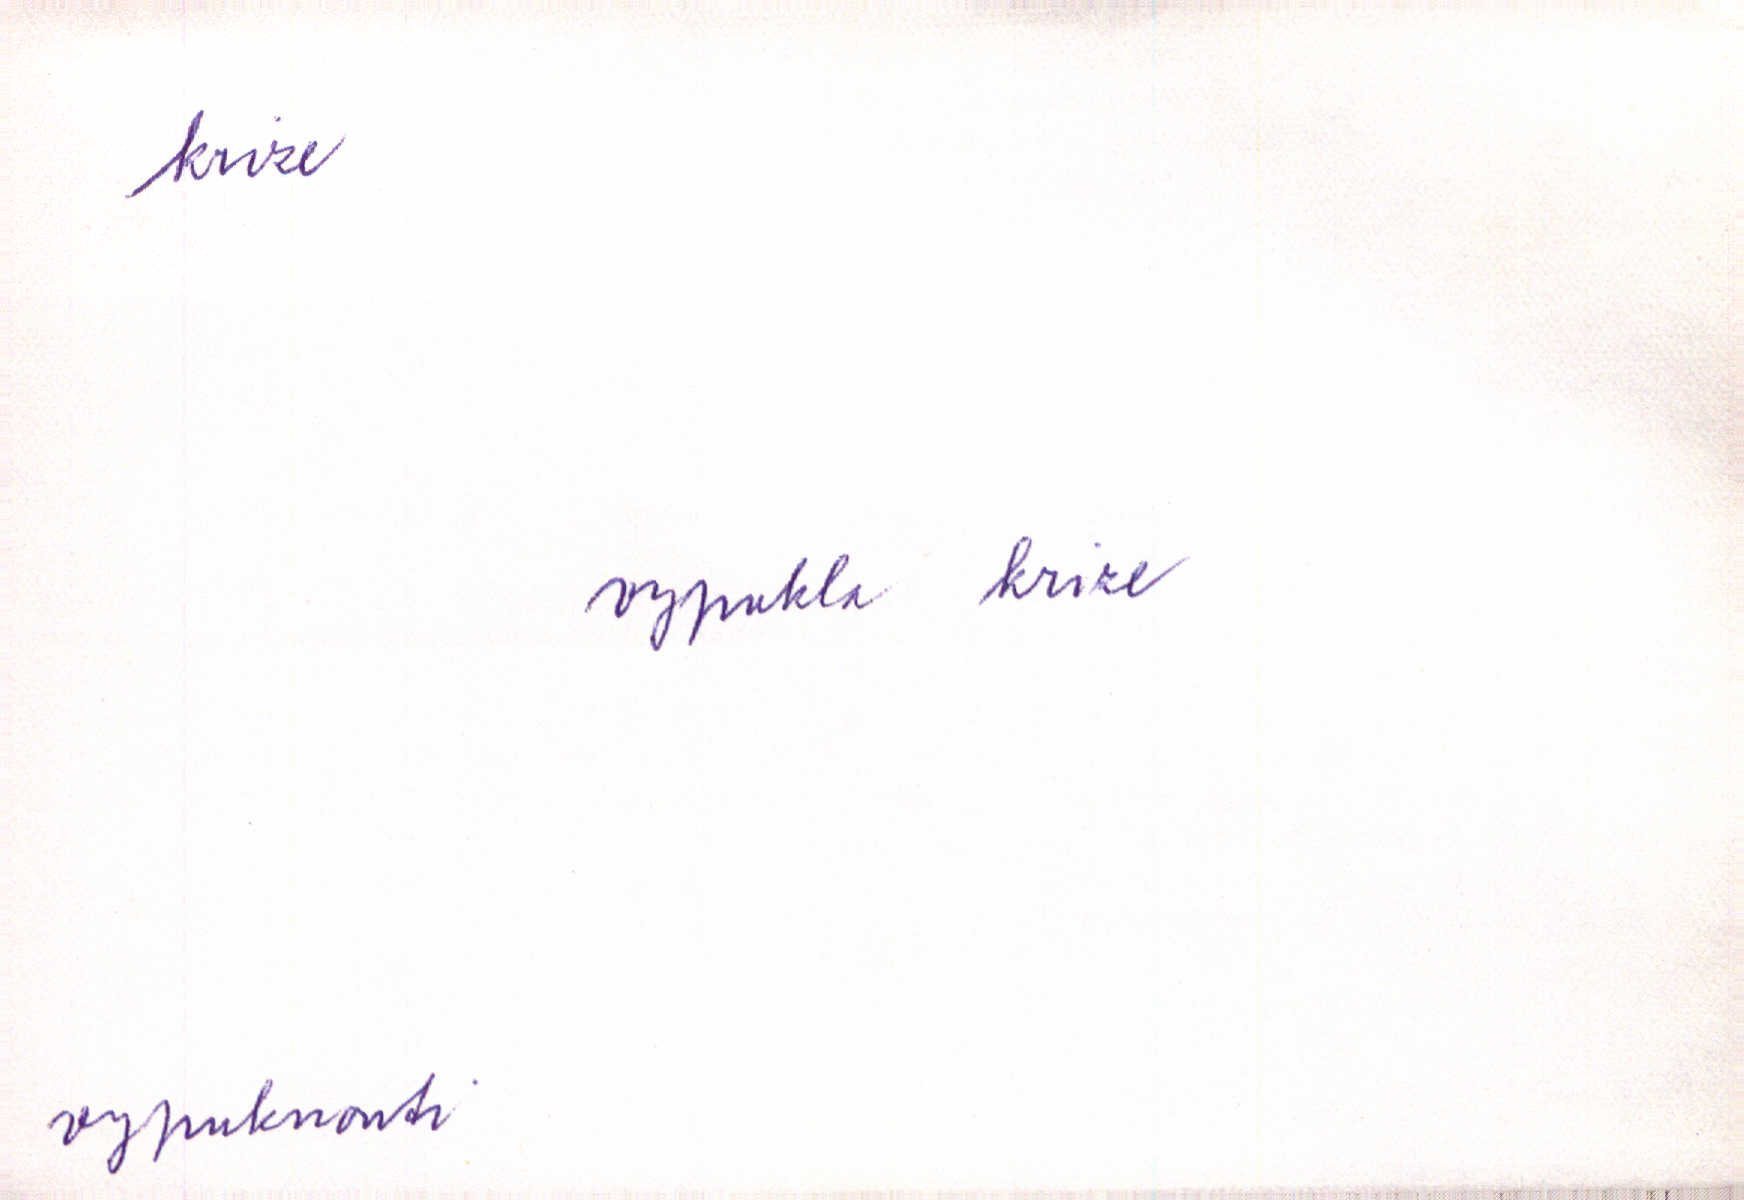 krize
vypukla krize
vypuknouti